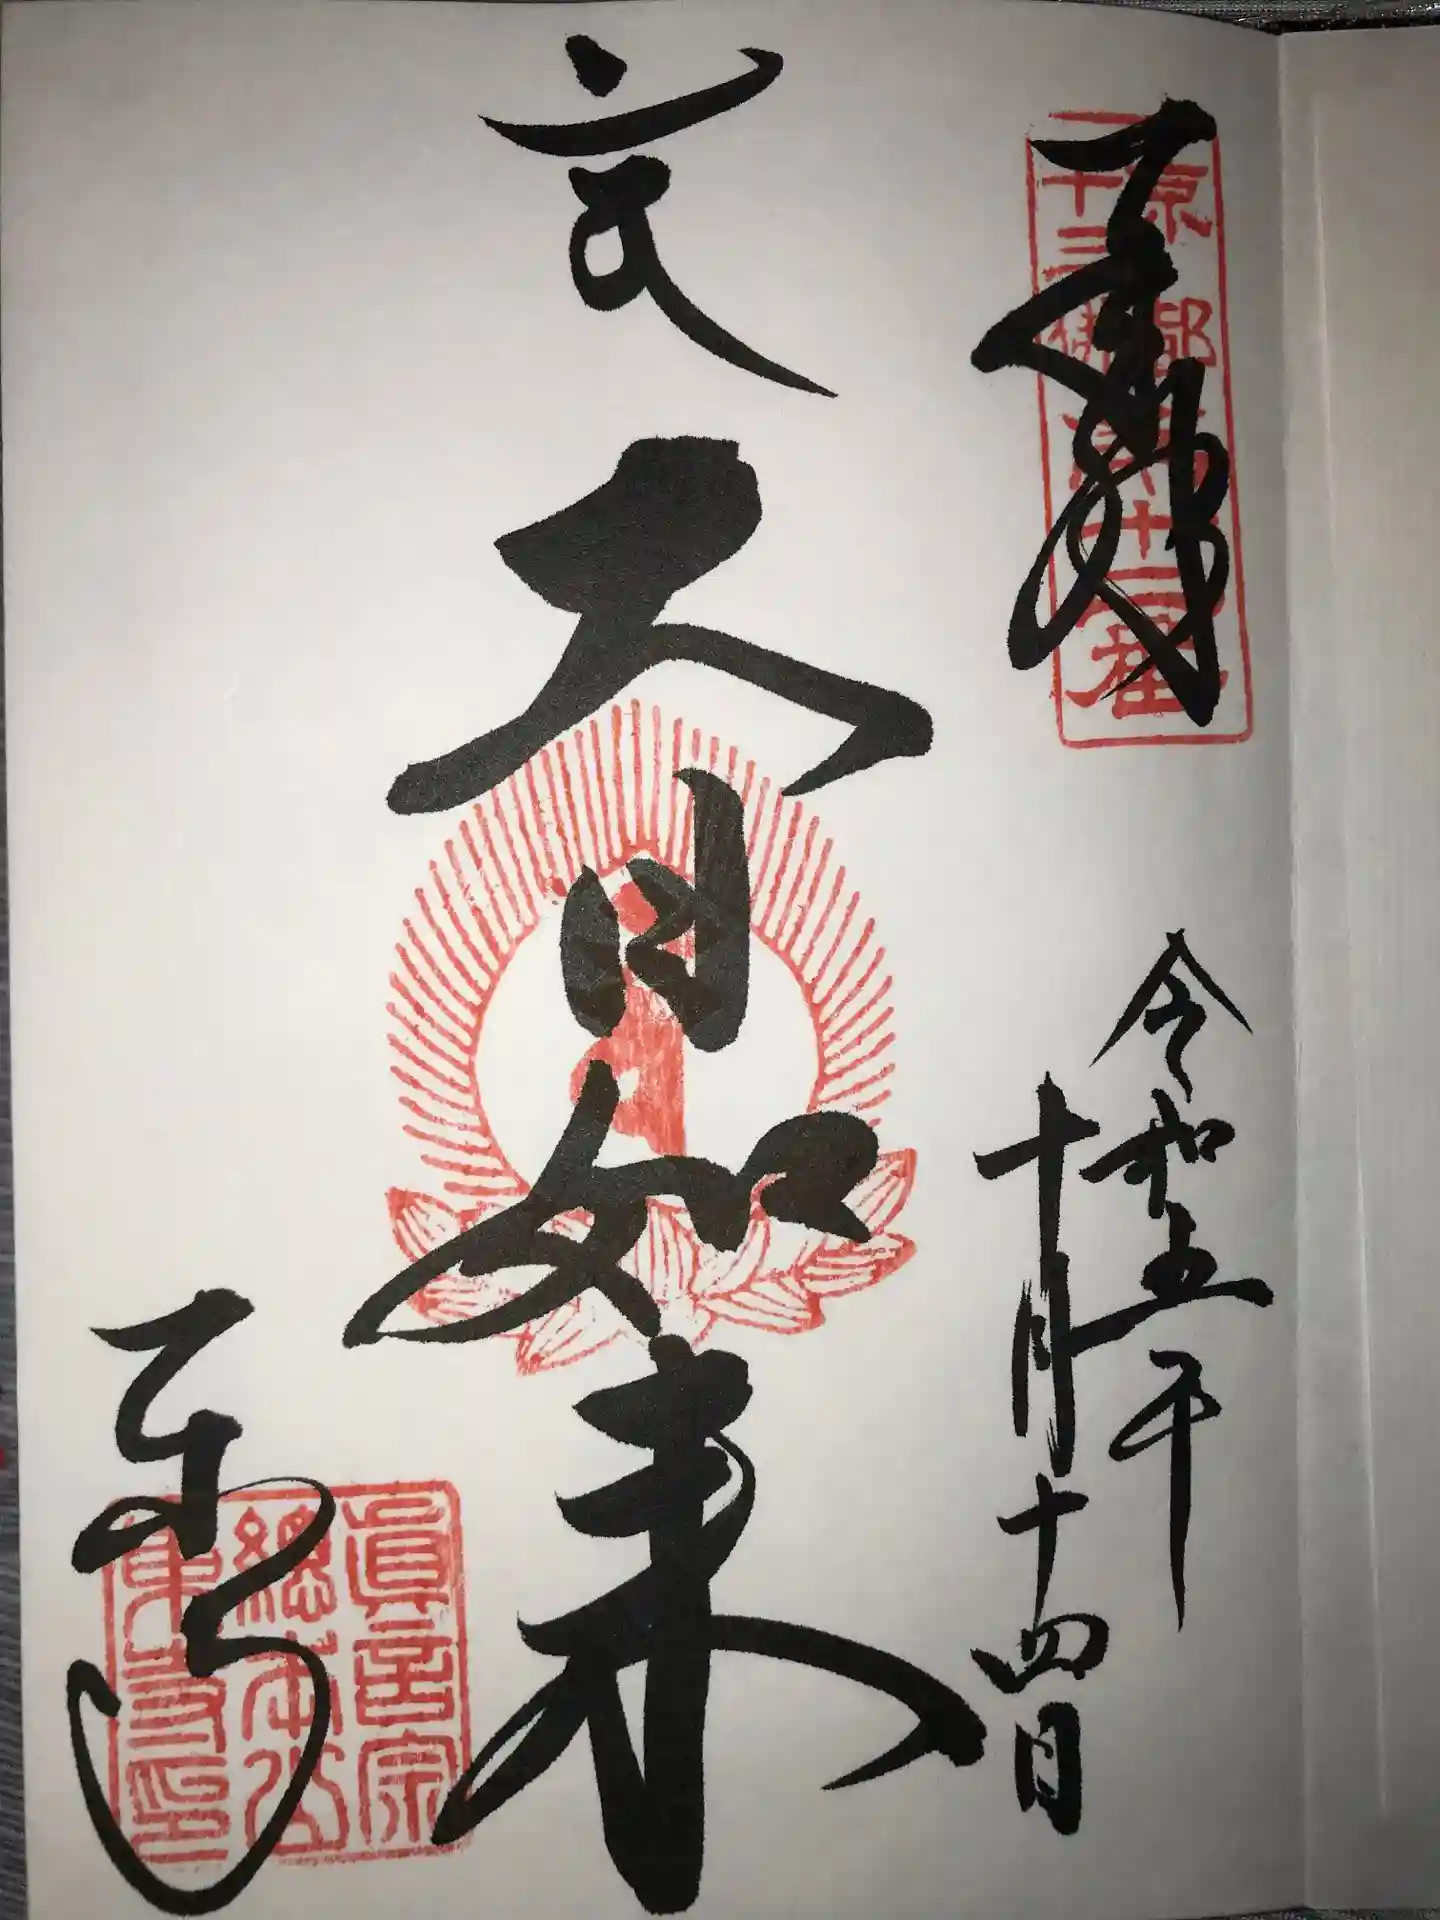 奉拝
京都
十三佛
第十二番
令和五年
十月十四日
大日如来
東寺
眞言宗
総本山
東寺印